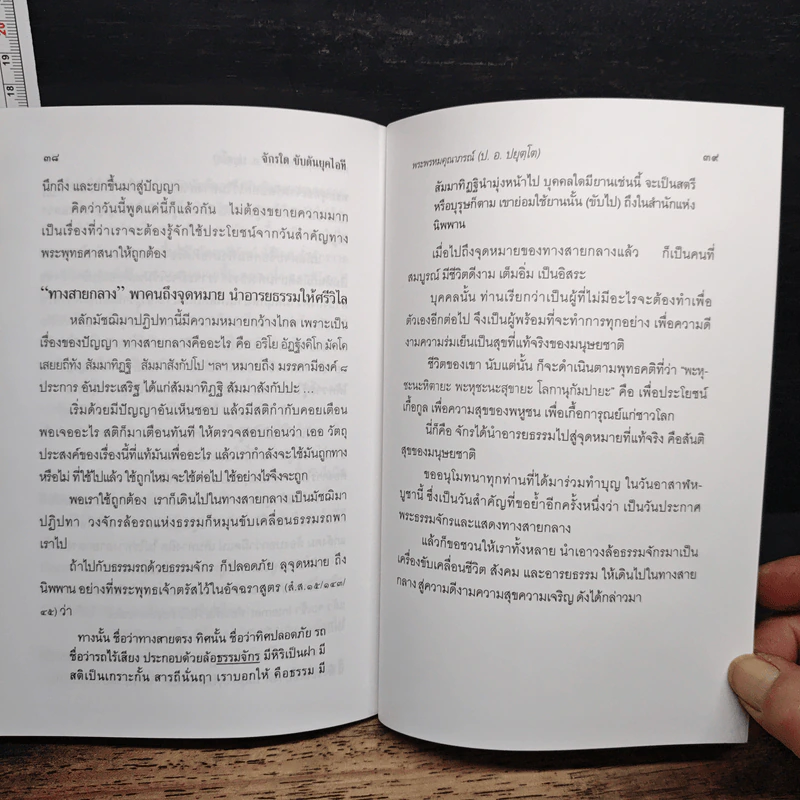 20
19
18
๓๘
จักรใด ขับดันยุคไอที
นึกถึง และยกขึ้นมาสู่ปัญญา
คิดว่าวันนี้พูดแค่นี้ก็แล้วกัน ไม่ต้องขยายความมาก
เป็นเรื่องที่ว่าเราจะต้องรู้จักใช้ประโยชน์จากวันสำคัญทาง
พระพุทธศาสนาให้ถูกต้อง
“ทางสายกลาง” พาคนถึงจุดหมาย นำอารยธรรมให้ศรีวิไล
หลักมัชฌิมาปฏิปทานี้มีความหมายกว้างไกล เพราะเป็น
เรื่องของปัญญา ทางสายกลางคืออะไร คือ อริโย อัฏฐังคิโก มัคโค
เสยยถีทัง สัมมาทิฏฐิ สัมมาสังกัปโป ฯลฯ หมายถึง มรรคามีองค์ ๘
ประการ อันประเสริฐ ได้แก่สัมมาทิฏฐิ สัมมาสังกัปปะ ...
เริ่มด้วยมีปัญญาอันเห็นชอบ แล้วมีสติกำกับคอยเตือน
พอเจออะไร สติก็มาเตือนทันที ให้ตรวจสอบก่อนว่า เออ วัตถุ
ประสงค์ของเรื่องนี้ที่แท้มันเพื่ออะไร แล้วเรากำลังจะใช้มันถูกทาง
หรือไม่ ที่ใช้ไปแล้ว ใช้ถูกไหม จะใช้ต่อไป ใช้อย่างไรจึงจะถูก
พอเราใช้ถูกต้อง เราก็เดินไปในทางสายกลาง เป็นมัชฌิมา
ปฏิปทา วงจักรล้อรถแห่งธรรมก็หมุนขับเคลื่อนธรรมรถพา
เราไป
ถ้าไปกับธรรมรถด้วยธรรมจักร ก็ปลอดภัย ลุจุดหมาย ถึง
นิพพาน อย่างที่พระพุทธเจ้าตรัสไว้ในอัจฉราสูตร (สํ.ส.๑๕/๑๔๓/
๔๕) ว่า
ทางนั้น ชื่อว่าทางสายตรง ทิศนั้น ชื่อว่าทิศปลอดภัย รถ
ชื่อว่ารถไร้เสียง ประกอบด้วยล้อธรรมจักร มีหิริเป็นฝา มี
สติเป็นเกราะกั้น สารถีนั่นฤา เราบอกให้ คือธรรม มี
พระพรหมคุณาภรณ์ (ป. อ. ปยุตฺโต)
๓๙
สัมมาทิฏฐินำมุ่งหน้าไป บุคคลใดมียานเช่นนี้ จะเป็นสตรี
หรือบุรุษก็ตาม เขาย่อมใช้ยานนั้น (ขับไป) ถึงในสำนักแห่ง
นิพพาน
เมื่อไปถึงจุดหมายของทางสายกลางแล้ว ก็เป็นคนที่
สมบูรณ์ มีชีวิตดีงาม เต็มอิ่ม เป็นอิสระ
บุคคลนั้น ท่านเรียกว่าเป็นผู้ที่ไม่มีอะไรจะต้องทำเพื่อ
ตัวเองอีกต่อไป จึงเป็นผู้พร้อมที่จะทำการทุกอย่าง เพื่อความดี
งามความร่มเย็นเป็นสุขที่แท้จริงของมนุษยชาติ
ชีวิตของเขา นับแต่นั้น ก็จะดำเนินตามพุทธคติที่ว่า “พะหุ-
ชะนะหิตายะ พะหุชะนะสุขายะ โลกานุกัมปายะ” คือ เพื่อประโยชน์
เกื้อกูล เพื่อความสุขของพหูชน เพื่อเกื้อการุณย์แก่ชาวโลก
นี่ก็คือ จักรได้นำอารยธรรมไปสู่จุดหมายที่แท้จริง คือสันติ
สุขของมนุษยชาติ
ขออนุโมทนาทุกท่านที่ได้มาร่วมทำบุญ ในวันอาสาฬห-
บูชานี้ ซึ่งเป็นวันสำคัญที่ขอย้ำอีกครั้งหนึ่งว่า เป็นวันประกาศ
พระธรรมจักรและแสดงทางสายกลาง
แล้วก็ขอชวนให้เราทั้งหลาย นำเอาวงล้อธรรมจักรมาเป็น
เครื่องขับเคลื่อนชีวิต สังคม และอารยธรรม ให้เดินไปในทางสาย
กลาง สู่ความดีงามความสุขความเจริญ ดังได้กล่าวมา